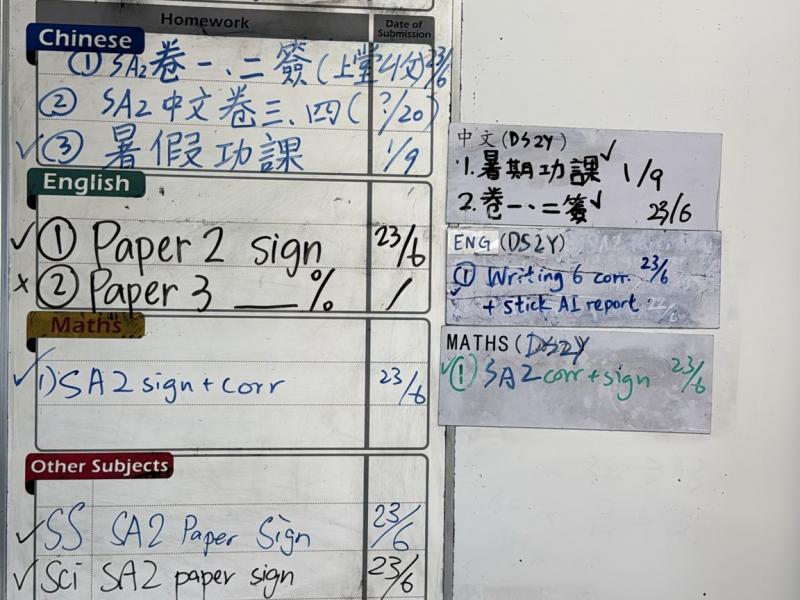 Homework Date of Submission
Chinese
① SA2卷一、二簽(上堂收) 23/6
② SA2中文卷三、四(?/20)
✓ ③ 暑假功課 1/9
English
✓ ① Paper 2 sign 23/6
x ② Paper 3 ___% /
Maths
✓ 1) SA2 sign + corr 23/6
Other Subjects
✓ SS SA2 Paper Sign 23/6
✓ Sci SA2 paper sign 23/6
中文(DS2Y)
1. 暑期功課✓ 1/9
2. 卷一、二簽✓ 23/6
ENG (DS2Y)
① Writing 6 corr. 23/6
✓ + stick AI report
MATHS (DS2Y)
✓ ① SA2 corr + sign 23/6